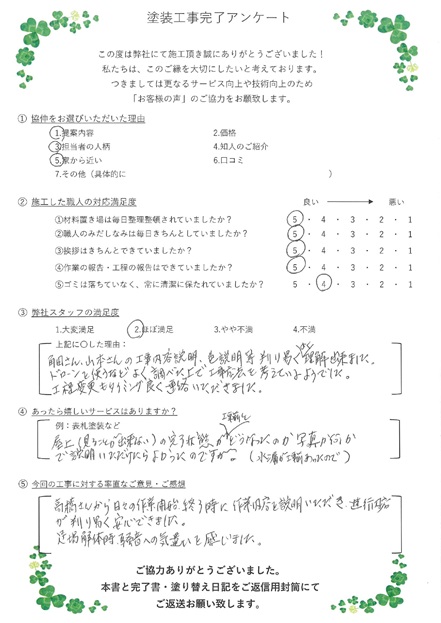 塗装工事完了アンケート
この度は弊社にて施工頂き誠にありがとうございました！
私たちは、このご縁を大切にしたいと考えております。
つきましては更なるサービス向上や技術向上のため
「お客様の声」のご協力をお願致します。
① 協伸をお選びいただいた理由
1.提案内容 2.価格
3.担当者の人柄 4.知人のご紹介
5.家から近い 6.口コミ
7.その他（具体的に ）
② 施工した職人の対応満足度 良い 悪い
①材料置き場は毎日整理整頓されていましたか？ 5・4・3・2・1
②職人のみだしなみは毎日きちんとしていましたか？ 5・4・3・2・1
③挨拶はきちんとできていましたか？ 5・4・3・2・1
④作業の報告・工程の報告はできていましたか？ 5・4・3・2・1
⑤ゴミは落ちていなく、常に清潔に保たれていましたか？ 5・4・3・2・1
③ 弊社スタッフの満足度
1.大変満足 2.ほぼ満足 3.やや不満 4.不満
上記に○した理由：
さん、山本さんの工事内容説明、色説明等判り易く理解出来ました。
ドローンを使うなどよく調べた上で工事方法を考えているようでした。
工程変更もタイミング良く連絡いただきました。
④ あったら嬉しいサービスはありますか？
例：表札塗装など
屋上（見ることが出来ない）の完了状態がどうなったのか写真か何か
で説明いただけたらよかったのですが。
⑤ 今回の工事に対する率直なご意見・ご感想
高橋さんから日々の作業開始、終了時に作業内容を説明いただき、進行状況
が判り易く安心できました。
足場解体時、騒音への気遣いを感じました。
ご協力ありがとうございました。
本書と完了書・塗り替え日記をご返信用封筒にて
ご返送お願い致します。